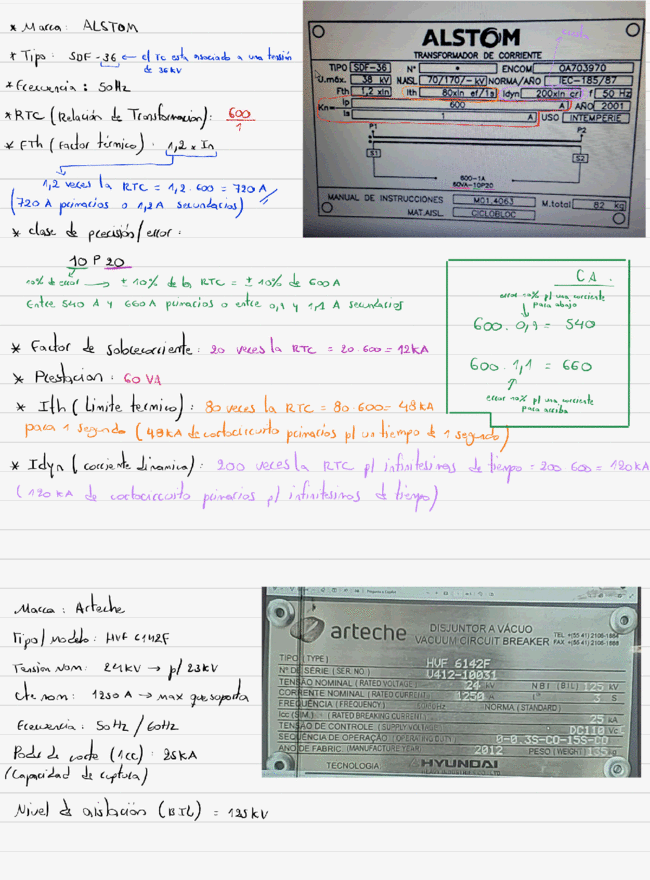 * Marca: ALSTOM
* Tipo: SDF-36 ← el TC esta asociado a una tensión
de 36kV
* Frecuencia: 50Hz
* RTC (Relación de Transformación): 600/1
* FTh (Factor térmico): 1,2 x In
1,2 veces la RTC = 1,2 . 600 = 720 A
(720 A primarios o 1,2 A secundarios)
* clase de precisión/error:
10 P 20
10% de error → ± 10% de la RTC = ± 10% de 600 A
Entre 540 A y 660 A primarios o entre 0,9 y 1,1 A secundarios
* Factor de sobrecorriente: 20 veces la RTC = 20 . 600 = 12kA
* Prestacion: 60 VA
* Ith (Limite termico): 80 veces la RTC = 80 . 600 = 48kA
para 1 segundo (48kA de cortocircuito primarios p/ un tiempo de 1 segundo)
* Idyn (corriente dinamica): 200 veces la RTC p/ infinitesimos de tiempo = 200 600 = 120kA
(120 kA de cortocircuito primarios p/ infinitesimos de tiempo)
ALSTOM
TRANSFORMADOR DE CORRIENTE
TIPO SDF-36 N° • ENCOM OA703970
U.máx. 38 kV N.AISL 70/170/- kV NORMA/AÑO IEC-185/87
Fth 1,2 xin Ith 80xin ef/1s Idyn 200xin cr f 50 Hz
Kn= Ip 600 A AÑO 2001
Is 1 A USO INTEMPERIE
P1 P2
S1 S2
600-1A
60VA-10P20
MANUAL DE INSTRUCCIONES M01.4063 M.total 82 kg
MAT.AISL. CICLOBLOC
C.A.
error 10% p/ una corriente
para abajo
600 . 0,9 = 540
600 . 1,1 = 660
error 10% p/ una corriente
para arriba
Marca: Arteche
Tipo/Modelo: HVF 6142F
Tension nom: 24kV → p/ 23kV
Cte nom: 1250 A → max que soporta
Frecuencia: 50Hz/60Hz
Poder de corte (Icc): 25kA
(Capacidad de ruptura)
Nivel de aislación (BIL) = 125kV
arteche
DISJUNTOR A VÁCUO
VACUUM CIRCUIT BREAKER
TIPO (TYPE) HVF 6142F
Nº DE SÉRIE (SER. NO.) U412-10031
TENSÃO NOMINAL (RATED VOLTAGE) 24 kV NBI (BIL) 125 kV
CORRENTE NOMINAL (RATED CURRENT) 1250 A 3 S
FREQUÊNCIA (FREQUENCY) 50/60Hz NORMA (STANDARD)
Icc (SIM.) (RATED BREAKING CURRENT) 25 kA
TENSÃO DE CONTROLE (SUPPLY VOLTAGE) DC110 Vc
SEQUÊNCIA DE OPERAÇÃO (OPERATING DUTY) O-0,3S-CO-15S-CO
ANO DE FABRIC. (MANUFACTURE YEAR) 2012 PESO (WEIGHT) 135 kg
TECNOLOGIA HYUNDAI